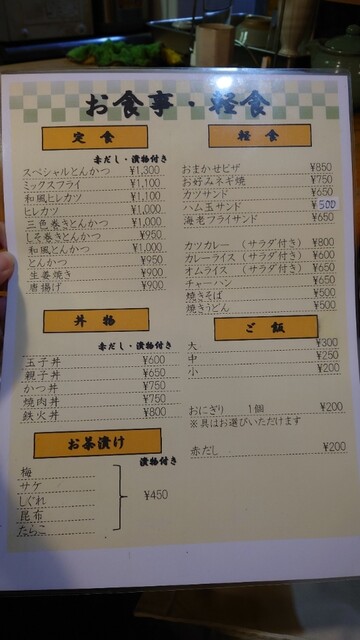 お食事・軽食
定食
赤だし・漬物付き
スペシャルとんかつ ¥1,300
ミックスフライ ¥1,100
和風ヒレカツ ¥1,100
ヒレカツ ¥1,000
三色巻きとんかつ ¥1,000
しそ巻きとんかつ ¥950
和風とんかつ ¥1,000
とんかつ ¥950
生姜焼き ¥900
唐揚げ ¥900
丼物
赤だし・漬物付き
玉子丼 ¥600
親子丼 ¥650
かつ丼 ¥750
焼肉丼 ¥750
鉄火丼 ¥800
お茶漬け
漬物付き
梅
サケ
しぐれ
昆布
たらこ
¥450
軽食
おまかせピザ ¥850
お好みネギ焼 ¥750
カツサンド ¥650
ハム玉サンド ¥500
海老フライサンド ¥650
カツカレー (サラダ付き) ¥800
カレーライス (サラダ付き) ¥600
オムライス (サラダ付き) ¥650
チャーハン ¥650
焼きそば ¥500
焼きうどん ¥500
ご飯
大 ¥300
中 ¥250
小 ¥200
おにぎり 1個 ¥200
※具はお選びいただけます
赤だし ¥200